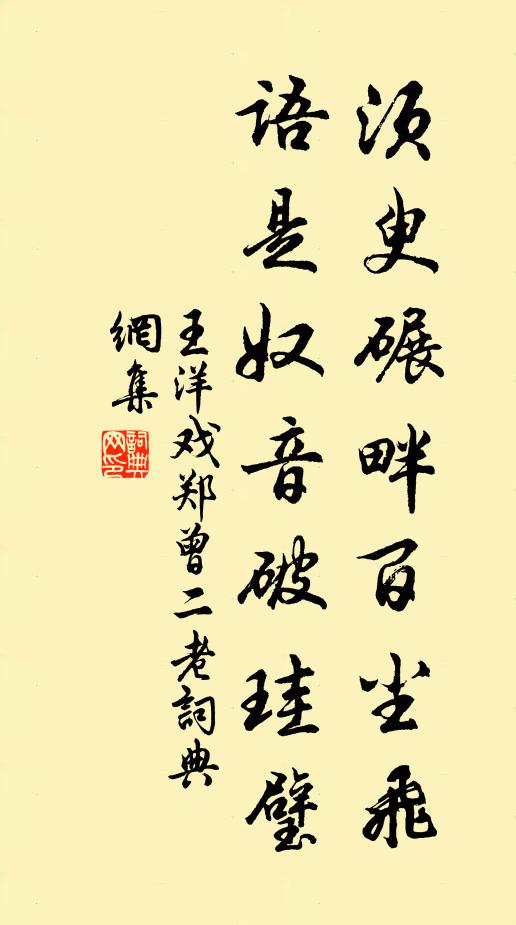 须臾碾畔百尘飛
语是奴音破珪璧
王洋戏郑曾二老詞典
網集
詞典
网印